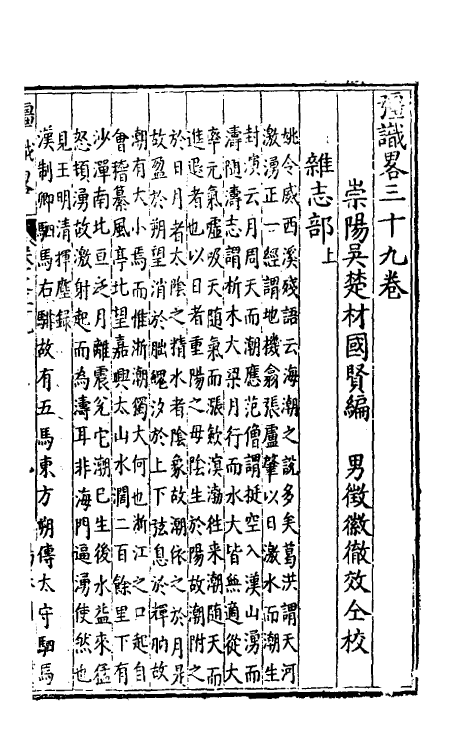 彊識畧三十九卷
崇陽吳楚材國賢編　男徵徽徹效仝校
雜志部上
姚令威西溪殘語云海潮之說多矣葛洪謂天河
激湧正一經謂地機翕張盧肇以日激水而潮生
封演云月周天而潮應范僧謂挺空入漢山湧而
濤随濤志謂析木大梁月行而水大皆無適從大
率元氣噓吸天随氣而漲斂溟渤徃來潮随天而
進退者也以日者重陽之母陰生於陽故潮附之
於日月者太陰之精水者陰象故潮依之於月是
故盈於朔望消於朏魄汐於上下弦息於朓朒故
潮有大小焉而惟浙潮獨大何也浙江之口起自
會稽纂風亭北望嘉興太山水濶二百餘里下有
沙潬南北亘之月離震兊它潮已生後水益來猛
怒頓湧故激射起而為濤耳非海門逼湧使然也
見王明清揮麈録
漢制卿駟馬右騑故有五馬東方朔傳太守駟馬
彊識畧